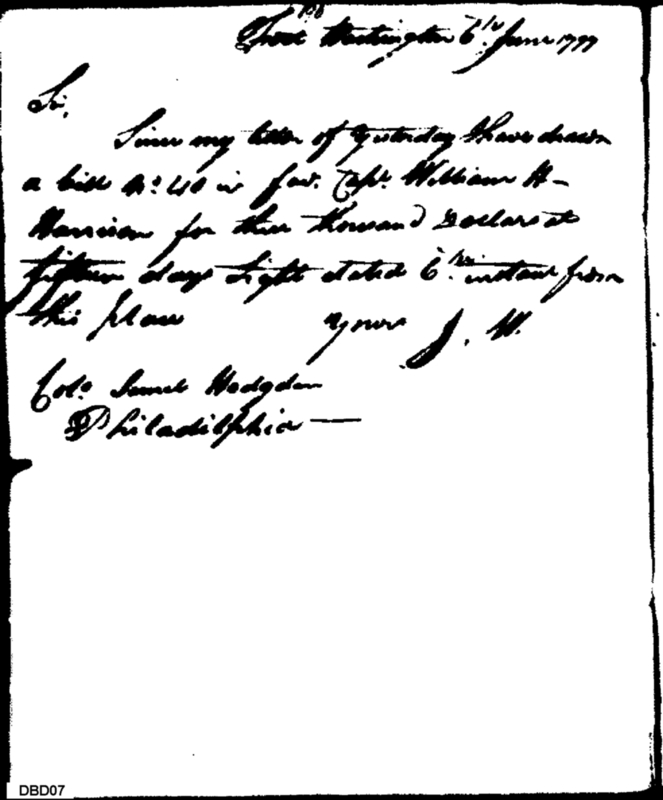 Fort Washington 6th June 1797
Sir,
Since my letter of yesterday I have drawn
a bill No: 418 in fav. Capt. William H-
Harrison for three thousand Dollars at
fifteen days sight dated 6th instant from
this place
Yours J. W.
Colo. Samuel Hodgdon
Philadelphia —
DBD07